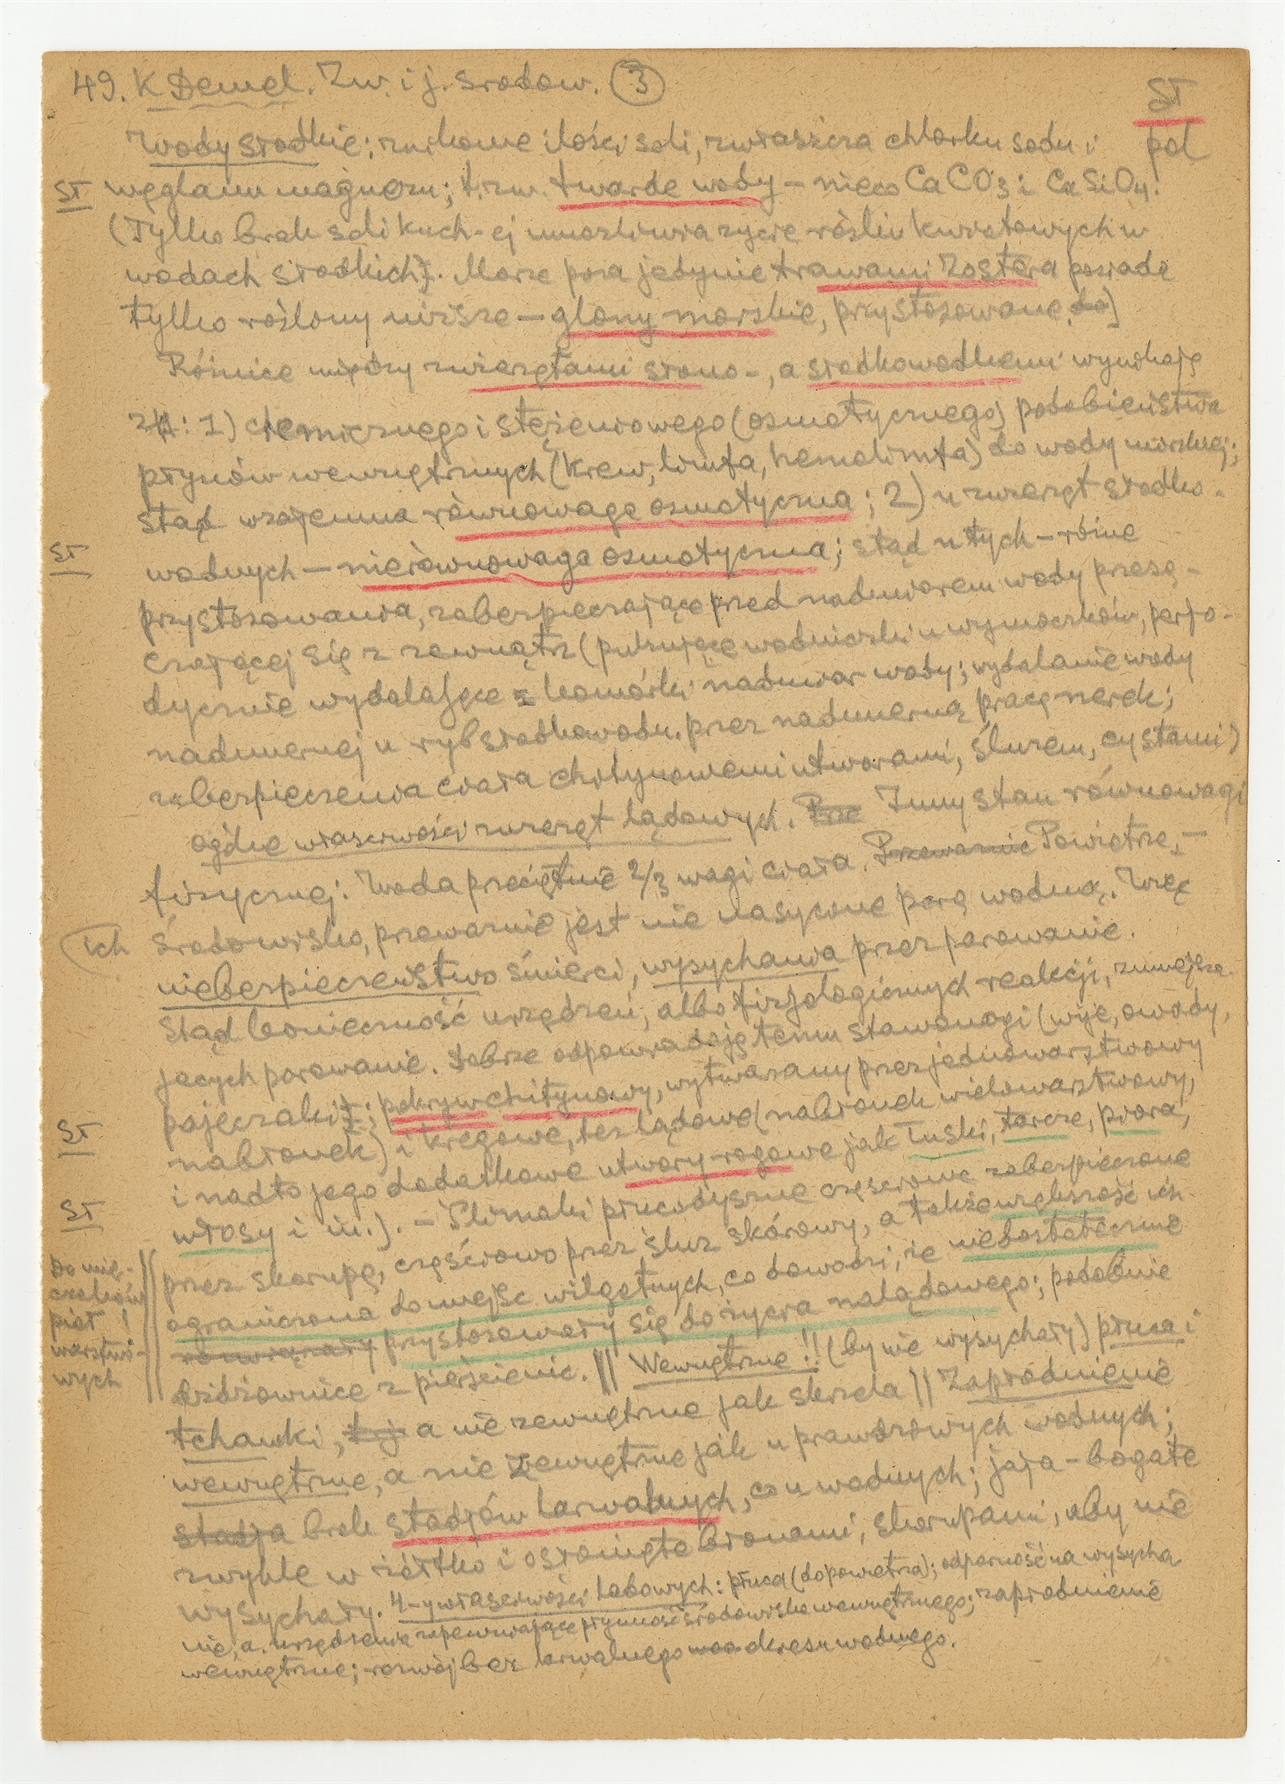 49. K Demel. Zw. i j. środow. (3)
ST
pol
Wody słodkie; znikome ilości soli, zwłaszcza chlorku sodu i
ST węglanu magnezu; t.zw. twarde wody – nieco CaCO3 i CaSiO4.
(Tylko brak soli kuch-ej umożliwia życie roślin kwiatowych w
wodach słodkich). Morze poza jedynie trawami Zostera posiada
tylko rośliny niższe – glony morskie, przystosowane do]
Różnice między zwierzętami słono-, a słodkowodnemi wynikają
z: 1) chemicznego i stężeniowego (osmotycznego) podobieństwa
płynów wewnętrznych (krew, limfa, hemolimfa) do wody morskiej;
stąd wzajemna równowaga osmotyczna; 2) u zwierząt słodko-
ST
wodnych – nierównowaga osmotyczna; stąd u tych – różne
przystosowania, zabezpieczające przed nadmiarem wody przesą-
czającej się z zewnątrz (pulsujące wodniczki u wymoczków, perjo-
dycznie wydalające z komórki nadmiar wody; wydalanie wody
nadmiernej u ryb słodkowodn. przez nadmierną pracę nerek;
zabezpieczenia ciała chitynowemi utworami, śluzem, cystami)
ogólne właściwości zwierząt lądowych. Prze Inny stan równowagi
fizycznej: Woda przeciętnie 2/3 wagi ciała. Przeważnie Powietrze, –
ich środowisko, przeważnie jest nie nasycone parą wodną. Więc
niebezpieczeństwo śmierci, wysychania przez parowanie.
Stąd konieczność urządzeń, albo fizjologicznych reakcji, zmniejsza-
jących parowanie. Dobrze odpowiadają temu stawonogi (wije, owady,
pajęczaki); pokryw chitynowy, wytwarzany przez jednowarstwowy
ST
nabłonek) i kręgowe, też lądowe (nabłonek wielowarstwowy,
i nadto jego dodatkowe utwory rogowe jak łuski, tarcze, pióra,
ST
włosy i in.). – Ślimaki płucodyszne częściowo zabezpieczone
przez skorupę, częściowo przez śluz skórowy, a także większość ich
ograniczona do miejsc wilgotnych, co dowodzi, że niedostatecznie
rozwiązały przystosowały się do życia nalądowego; podobnie
Do mię-
czaków
pięt !
warstwo-
wych
dżdżownice z pierścienic. || Wewnętrzne !! (by nie wysychały) płuca i
tchawki, tj a nie zewnętrzne jak skrzela || Zapłodnienie
wewnętrzne, a nie zewnętrzne jak u prawdziwych wodnych;
stadja brak stadjów larwalnych, co u wodnych; jaja – bogate
zwykle w żółtko i osłonięte błonami, skorupami, aby nie
wysychały. 4-y właściwości lądowych: płuca (do powietrza); odporność na wysycha
nie, a. urządzenia zapewniające płynność środowiska wewnętrznego; zapłodnienie
wewnętrzne; rozwój bez larwalnego okresu wodnego.